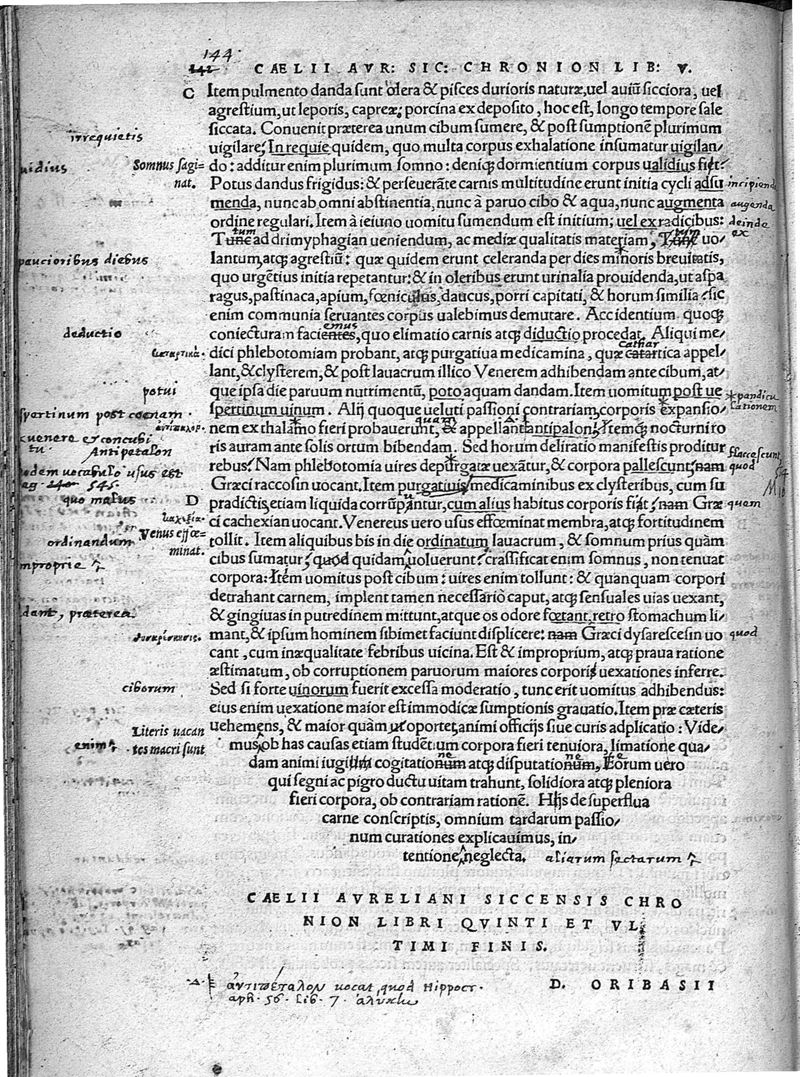 144
CAELII AVR: SIC: CHRONION LIB: V.
C Item pulmento danda sunt olera & pisces durioris naturæ, uel auiũ sicciora, uel
agrestium, ut leporis, capreæ; porcina ex deposito, hoc est, longo tempore sale
siccata. Conuenit præterea unum cibum sumere, & post sumptionẽ plurimum
irrequietis
uigilare; In requie quidem, quo multa corpus exhalatione insumatur uigilan/
uidius
Somnus sagi-
nat.
do: additur enim plurimum somno: deniq; dormientium corpus ualidius fiet.
Potus dandus frigidus: & perseuerãte carnis multitudine erunt initia cycli adsu
incipienda
menda, nunc ab omni abstinentia, nunc à paruo cibo & aqua, nunc augmenta
augenda
ordine regulari. Item à ieiuno uomitu sumendum est initium; uel ex radicibus:
deinde
ex
Tunc ad drimyphagian ueniendum, ac mediæ qualitatis materiam, uo/
tum
paucioribus diebus
lantum, atq; agrestiũ: quæ quidem erunt celeranda per dies minoris breuitatis,
quo urgẽtius initia repetantur: & in oleribus erunt urinalia prouidenda, ut aspa
ragus, pastinaca, apium, fœniculus, daucus, porri capitati, & horum similia: sic
enim communia seruantes corpus ualebimus demutare. Accidentium quoq;
deductio
coniecturam facientes, quo elimatio carnis atq; diductio procedat. Aliqui me/
emus
dici phlebotomiam probant, atq; purgatiua medicamina, quæ catartica appel/
cathar
lant, & clysterem, & post lauacrum illico Venerem adhibendam ante cibum, at/
potui
que ipsa die paruum nutrimentũ, poto aquam dandam. Item uomitum post ue
spertinum uinum. Alij quoque ueluti passioni contrariam, corporis expansio/
nem ex thalamo fieri probauerunt, & appellant antipalon; Itemq; nocturni ro
quam
Antipetalon
ris auram ante solis ortum bibendam. Sed horum deliratio manifestis proditur
flaccescunt
quod
rebus: Nam phlebotomia uires depurgatæ uexãtur, & corpora pallescunt: nam
Græci raccosin uocant. Item purgatiuis medicaminibus ex clysteribus, cum su
quo malus
D prædictis, etiam liquida corrũpantur, cum alius habitus corporis fiat: nam Græ
quem
ci cachexian uocant. Venereus uero usus effœminat membra, atq; fortitudinem
Venus effœ-
minat.
ordinandum
tollit. Item aliquibus bis in die ordinatum lauacrum, & somnum prius quàm
cibus sumatur; quod quidam uoluerunt: crassificat enim somnus, non tenuat
improprie
corpora: Item uomitus post cibum: uires enim tollunt: & quanquam corpori
detrahant carnem, implent tamen necessario caput, atq; sensuales uias uexant,
dant, præterea
& gingiuas in putredinem mittunt, atque os odore fœtant, retro stomachum li/
mant, & ipsum hominem sibimet faciunt displicere: nam Græci dysarescesin uo
quod
cant, cum inæqualitate febribus uicina. Est & improprium, atq; praua ratione
æstimatum, ob corruptionem paruorum maiores corporis uexationes inferre.
ciborum
Sed si forte uinorum fuerit excessa moderatio, tunc erit uomitus adhibendus:
eius enim uexatione maior est immodicæ sumptionis grauatio. Item præ cæteris
uehemens, & maior quàm ut oportet, animi officijs siue curis adplicatio: Vide/
Literis uacan
tes macri sunt
enim
mus, ob has causas etiam studẽtium corpora fieri tenuiora, limatione qua/
dam animi iugi cogitationum atq; disputationum, Eorum uero
ne
ne
qui segni ac pigro ductu uitam trahunt, solidiora atq; pleniora
fieri corpora, ob contrariam rationẽ. Hijs de superflua
carne conscriptis, omnium tardarum passio/
num curationes explicauimus, in/
tentione, neglecta.
aliarum sectarum
CAELII AVRELIANI SICCENSIS CHRO
NION LIBRI QVINTI ET VL
TIMI FINIS.
ἀντιπέταλον uocat, quod Hippocr.
aph. 56. lib. 7. ἀλυκω
D. ORIBASII